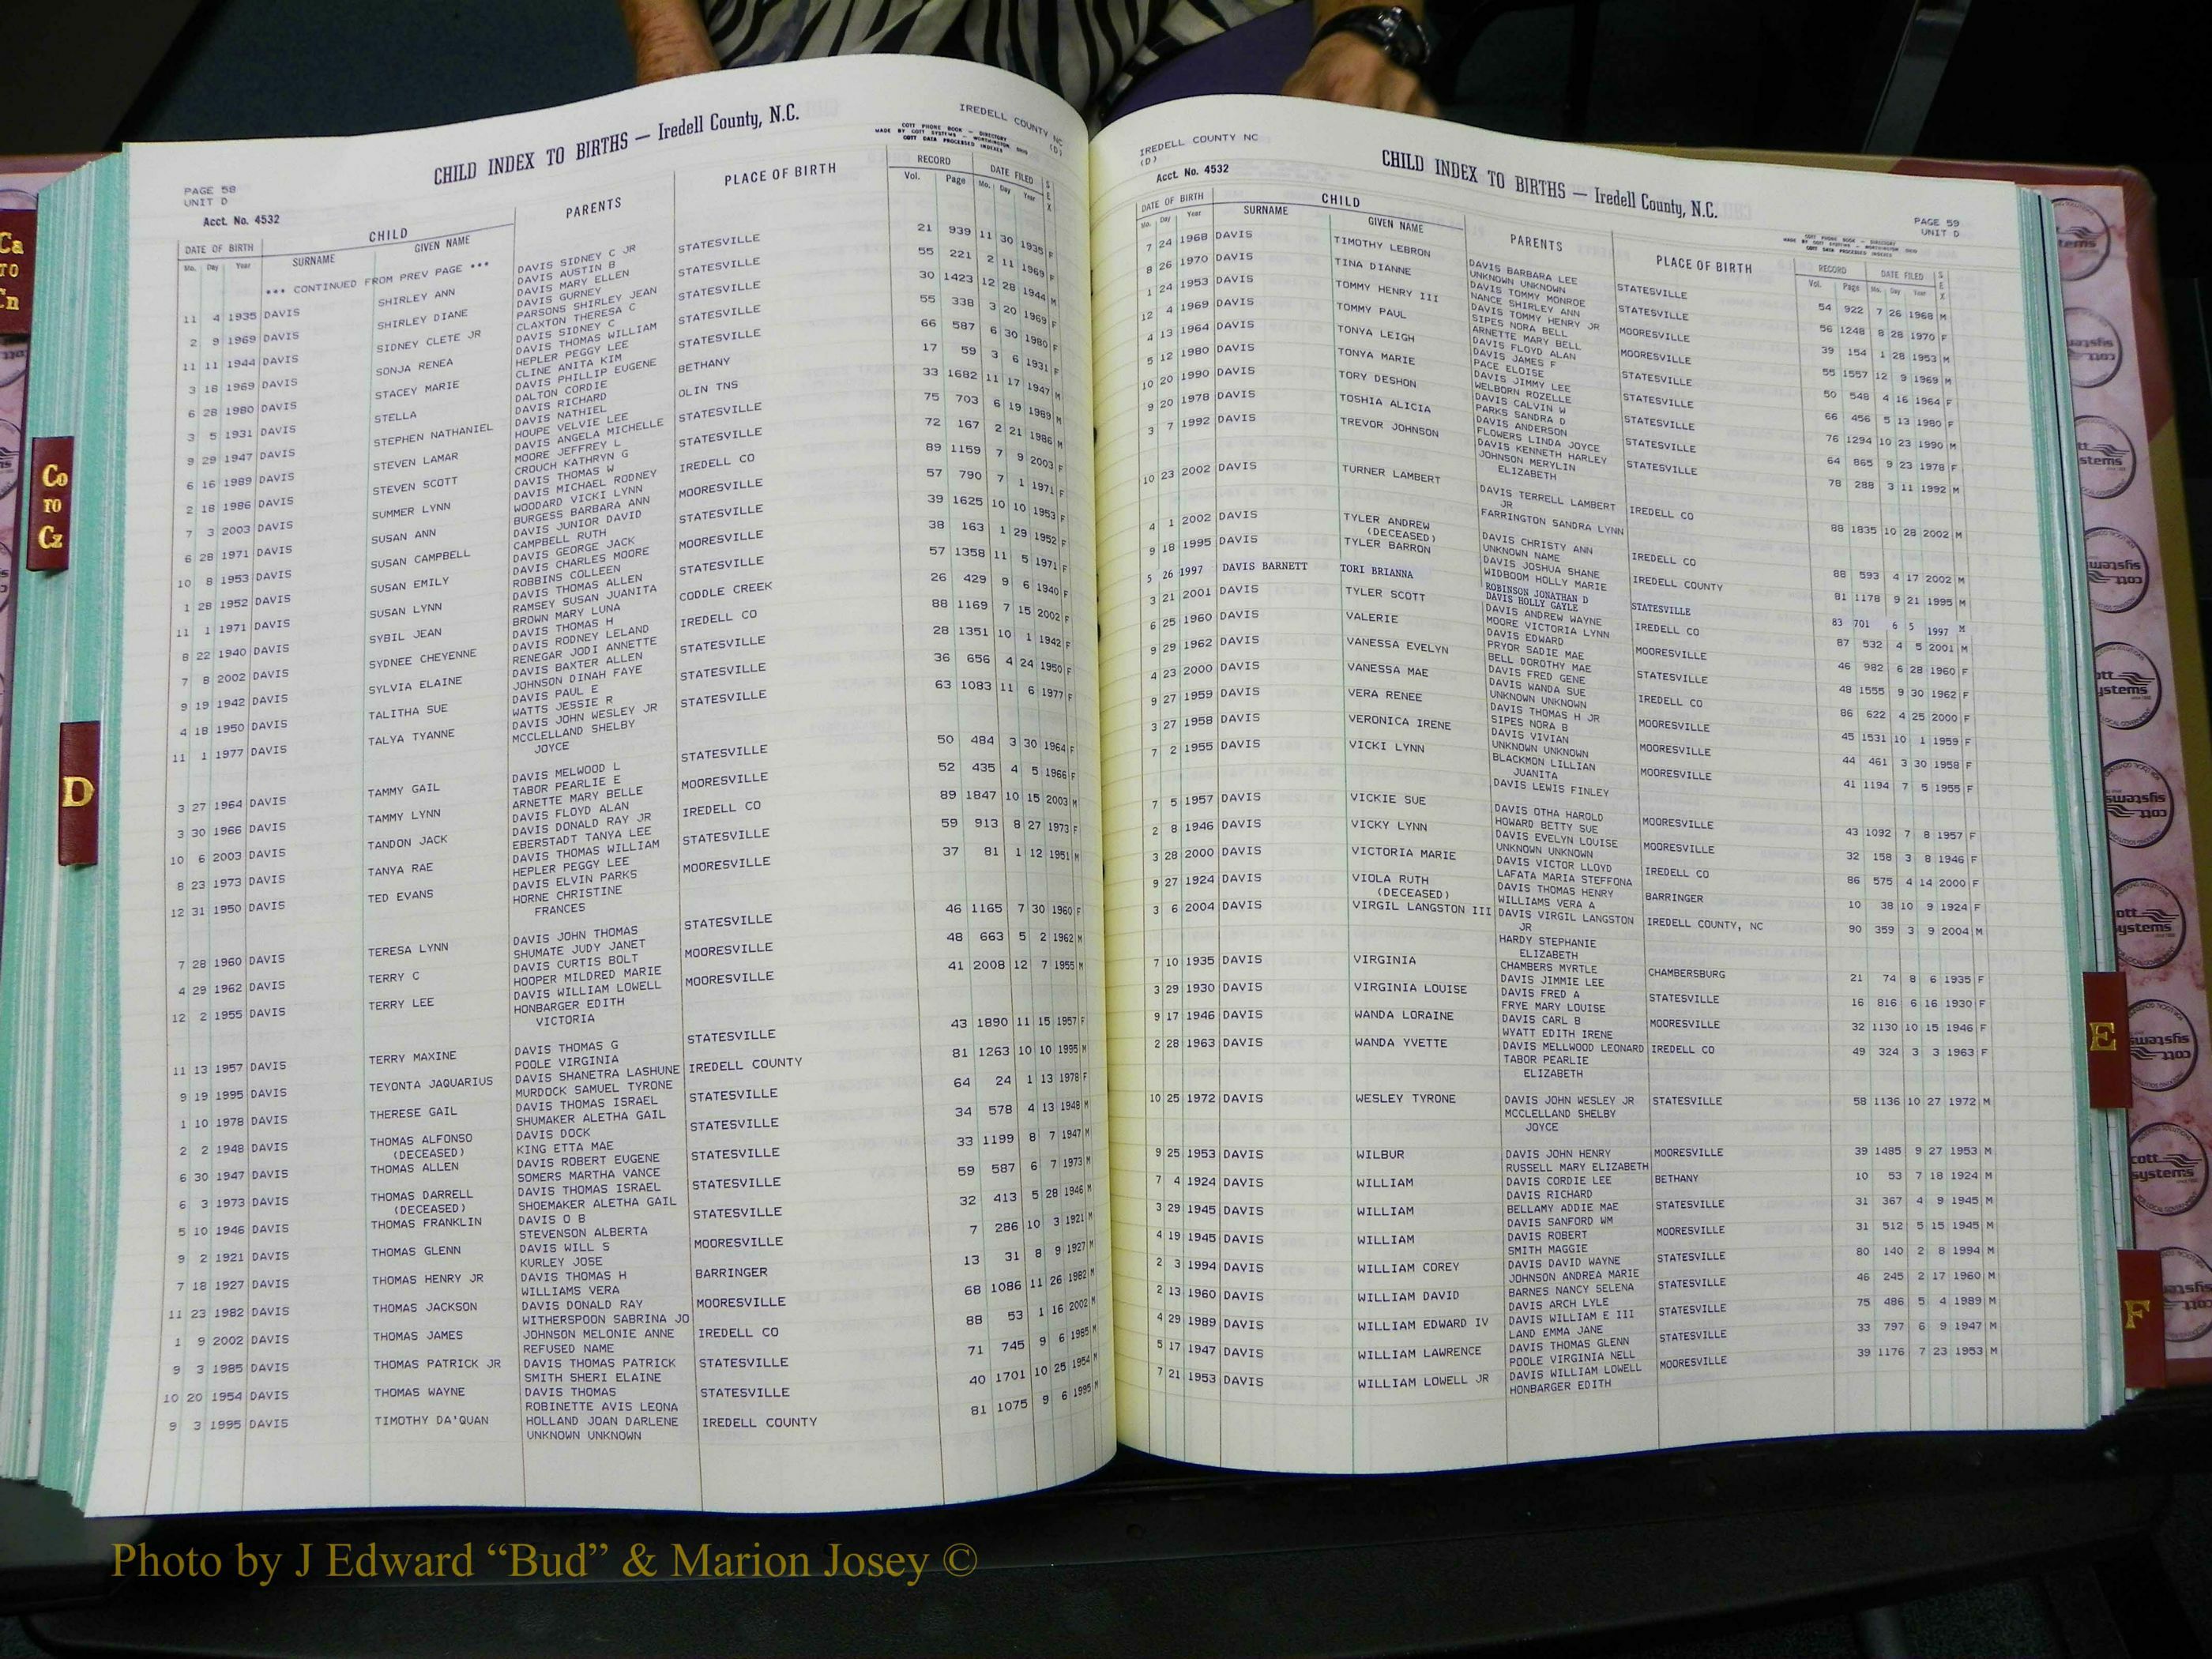 PAGE 58
UNIT D
Acct. No. 4532
CHILD INDEX TO BIRTHS — Iredell County, N.C.
IREDELL COUNTY NC
(D)
COTT PHONE BOOK — DIRECTORY
MADE BY COTT SYSTEMS — WORTHINGTON, OHIO
COTT DATA PROCESSED INDEXES
DATE OF BIRTH CHILD PARENTS PLACE OF BIRTH RECORD DATE FILED SEX
Mo. Day Year SURNAME GIVEN NAME Vol. Page Mo. Day Year
*** CONTINUED FROM PREV PAGE ***
11 4 1935 DAVIS SHIRLEY ANN DAVIS SIDNEY C JR STATESVILLE 21 939 11 30 1935 F
DAVIS AUSTIN B
2 9 1969 DAVIS SHIRLEY DIANE DAVIS MARY ELLEN STATESVILLE 55 221 2 11 1969 F
DAVIS GURNEY
11 11 1944 DAVIS SIDNEY CLETE JR PARSONS SHIRLEY JEAN STATESVILLE 30 1423 12 28 1944 M
CLAXTON THERESA C
3 18 1969 DAVIS SONJA RENEA DAVIS SIDNEY C STATESVILLE 55 338 3 20 1969 F
DAVIS THOMAS WILLIAM
6 28 1980 DAVIS STACEY MARIE HEPLER PEGGY LEE STATESVILLE 66 587 6 30 1980 F
CLINE ANITA KIM
3 5 1931 DAVIS STELLA DAVIS PHILLIP EUGENE BETHANY 17 59 3 6 1931 F
DALTON CORDIE
9 29 1947 DAVIS STEPHEN NATHANIEL DAVIS RICHARD OLIN TNS 33 1682 11 17 1947 M
DAVIS NATHIEL
6 16 1989 DAVIS STEVEN LAMAR HOUPE VELVIE LEE STATESVILLE 75 703 6 19 1989 M
DAVIS ANGELA MICHELLE
2 18 1986 DAVIS STEVEN SCOTT MOORE JEFFREY L STATESVILLE 72 167 2 21 1986 M
CROUCH KATHRYN G
7 3 2003 DAVIS SUMMER LYNN DAVIS THOMAS W IREDELL CO 89 1159 7 9 2003 F
DAVIS MICHAEL RODNEY
6 28 1971 DAVIS SUSAN ANN WOODARD VICKI LYNN MOORESVILLE 57 790 7 1 1971 F
BURGESS BARBARA ANN
10 8 1953 DAVIS SUSAN CAMPBELL DAVIS JUNIOR DAVID STATESVILLE 39 1625 10 10 1953 F
CAMPBELL RUTH
1 28 1952 DAVIS SUSAN EMILY DAVIS GEORGE JACK MOORESVILLE 38 163 1 29 1952 F
DAVIS CHARLES MOORE
11 1 1971 DAVIS SUSAN LYNN ROBBINS COLLEEN STATESVILLE 57 1358 11 5 1971 F
DAVIS THOMAS ALLEN
8 22 1940 DAVIS SYBIL JEAN RAMSEY SUSAN JUANITA CODDLE CREEK 26 429 9 6 1940 F
BROWN MARY LUNA
7 8 2002 DAVIS SYDNEE CHEYENNE DAVIS THOMAS H IREDELL CO 88 1169 7 15 2002 F
DAVIS RODNEY LELAND
9 19 1942 DAVIS SYLVIA ELAINE RENEGAR JODI ANNETTE STATESVILLE 28 1351 10 1 1942 F
DAVIS BAXTER ALLEN
4 18 1950 DAVIS TALITHA SUE JOHNSON DINAH FAYE STATESVILLE 36 656 4 24 1950 F
DAVIS PAUL E
WATTS JESSIE R
11 1 1977 DAVIS TALYA TYANNE DAVIS JOHN WESLEY JR STATESVILLE 63 1083 11 6 1977 F
MCCLELLAND SHELBY
JOYCE
3 27 1964 DAVIS TAMMY GAIL DAVIS MELWOOD L STATESVILLE 50 484 3 30 1964 F
TABOR PEARLIE E
3 30 1966 DAVIS TAMMY LYNN ARNETTE MARY BELLE MOORESVILLE 52 435 4 5 1966 F
DAVIS FLOYD ALAN
10 6 2003 DAVIS TANDON JACK DAVIS DONALD RAY JR IREDELL CO 89 1847 10 15 2003 M
EBERSTADT TANYA LEE
8 23 1973 DAVIS TANYA RAE DAVIS THOMAS WILLIAM STATESVILLE 59 913 8 27 1973 F
HEPLER PEGGY LEE
12 31 1950 DAVIS TED EVANS DAVIS ELVIN PARKS MOORESVILLE 37 81 1 12 1951 M
HORNE CHRISTINE
FRANCES
7 28 1960 DAVIS TERESA LYNN DAVIS JOHN THOMAS STATESVILLE 46 1165 7 30 1960 F
SHUMATE JUDY JANET
4 29 1962 DAVIS TERRY C DAVIS CURTIS BOLT MOORESVILLE 48 663 5 2 1962 M
HOOPER MILDRED MARIE
12 2 1955 DAVIS TERRY LEE DAVIS WILLIAM LOWELL MOORESVILLE 41 2008 12 7 1955 M
HONBARGER EDITH
VICTORIA
11 13 1957 DAVIS TERRY MAXINE DAVIS THOMAS G STATESVILLE 43 1890 11 15 1957 F
POOLE VIRGINIA
9 19 1995 DAVIS TEYONTA JAQUARIUS DAVIS SHANETRA LASHUNE IREDELL COUNTY 81 1263 10 10 1995 M
MURDOCK SAMUEL TYRONE
1 10 1978 DAVIS THERESE GAIL DAVIS THOMAS ISRAEL STATESVILLE 64 24 1 13 1978 F
SHUMAKER ALETHA GAIL
2 2 1948 DAVIS THOMAS ALFONSO DAVIS DOCK STATESVILLE 34 578 4 13 1948 M
(DECEASED) KING ETTA MAE
6 30 1947 DAVIS THOMAS ALLEN DAVIS ROBERT EUGENE STATESVILLE 33 1199 8 7 1947 M
SOMERS MARTHA VANCE
6 3 1973 DAVIS THOMAS DARRELL DAVIS THOMAS ISRAEL STATESVILLE 59 587 6 7 1973 M
(DECEASED) SHOEMAKER ALETHA GAIL
5 10 1946 DAVIS THOMAS FRANKLIN DAVIS O B STATESVILLE 32 413 5 28 1946 M
STEVENSON ALBERTA
9 2 1921 DAVIS THOMAS GLENN DAVIS WILL S MOORESVILLE 7 286 10 3 1921 M
KURLEY JOSE
7 18 1927 DAVIS THOMAS HENRY JR DAVIS THOMAS H BARRINGER 13 31 8 9 1927 M
WILLIAMS VERA
11 23 1982 DAVIS THOMAS JACKSON DAVIS DONALD RAY MOORESVILLE 68 1086 11 26 1982 M
WITHERSPOON SABRINA JO
1 9 2002 DAVIS THOMAS JAMES JOHNSON MELONIE ANNE IREDELL CO 88 53 1 16 2002 M
REFUSED NAME
9 3 1985 DAVIS THOMAS PATRICK JR DAVIS THOMAS PATRICK STATESVILLE 71 745 9 6 1985 M
SMITH SHERI ELAINE
10 20 1954 DAVIS THOMAS WAYNE DAVIS THOMAS STATESVILLE 40 1701 10 25 1954 M
ROBINETTE AVIS LEONA
9 3 1995 DAVIS TIMOTHY DA'QUAN HOLLAND JOAN DARLENE IREDELL COUNTY 81 1075 9 6 1995 M
UNKNOWN UNKNOWN
IREDELL COUNTY NC
(D)
Acct. No. 4532
CHILD INDEX TO BIRTHS — Iredell County, N.C.
PAGE 59
UNIT D
COTT PHONE BOOK — DIRECTORY
MADE BY COTT SYSTEMS — WORTHINGTON, OHIO
COTT DATA PROCESSED INDEXES
DATE OF BIRTH CHILD PARENTS PLACE OF BIRTH RECORD DATE FILED SEX
Mo. Day Year SURNAME GIVEN NAME Vol. Page Mo. Day Year
7 24 1968 DAVIS TIMOTHY LEBRON DAVIS BARBARA LEE STATESVILLE 54 922 7 26 1968 M
UNKNOWN UNKNOWN
8 26 1970 DAVIS TINA DIANNE DAVIS TOMMY MONROE STATESVILLE 56 1248 8 28 1970 F
NANCE SHIRLEY ANN
1 24 1953 DAVIS TOMMY HENRY III DAVIS TOMMY HENRY JR MOORESVILLE 39 154 1 28 1953 M
SIPES NORA BELL
12 4 1969 DAVIS TOMMY PAUL ARNETTE MARY BELL MOORESVILLE 55 1557 12 9 1969 M
DAVIS FLOYD ALAN
4 13 1964 DAVIS TONYA LEIGH DAVIS JAMES F STATESVILLE 50 548 4 16 1964 F
PACE ELOISE
5 12 1980 DAVIS TONYA MARIE DAVIS JIMMY LEE STATESVILLE 66 456 5 13 1980 F
WELBORN ROZELLE
10 20 1990 DAVIS TORY DESHON DAVIS CALVIN W STATESVILLE 76 1294 10 23 1990 M
PARKS SANDRA D
9 20 1978 DAVIS TOSHIA ALICIA DAVIS ANDERSON STATESVILLE 64 865 9 23 1978 F
FLOWERS LINDA JOYCE
3 7 1992 DAVIS TREVOR JOHNSON DAVIS KENNETH HARLEY STATESVILLE 78 288 3 11 1992 M
JOHNSON MERYLIN
ELIZABETH
10 23 2002 DAVIS TURNER LAMBERT DAVIS TERRELL LAMBERT IREDELL CO 88 1835 10 28 2002 M
JR
FARRINGTON SANDRA LYNN
4 1 2002 DAVIS TYLER ANDREW DAVIS CHRISTY ANN IREDELL CO 88 593 4 17 2002 M
(DECEASED) UNKNOWN NAME
9 18 1995 DAVIS TYLER BARRON DAVIS JOSHUA SHANE IREDELL COUNTY 81 1178 9 21 1995 M
WIDBOOM HOLLY MARIE
5 26 1997 DAVIS BARNETT TORI BRIANNA ROBINSON JONATHAN D STATESVILLE 83 701 6 5 1997 M
DAVIS HOLLY GAYLE
3 21 2001 DAVIS TYLER SCOTT DAVIS ANDREW WAYNE IREDELL CO 87 532 4 5 2001 M
MOORE VICTORIA LYNN
6 25 1960 DAVIS VALERIE DAVIS EDWARD MOORESVILLE 46 982 6 28 1960 F
PRYOR SADIE MAE
9 29 1962 DAVIS VANESSA EVELYN BELL DOROTHY MAE STATESVILLE 48 1555 9 30 1962 F
DAVIS FRED GENE
4 23 2000 DAVIS VANESSA MAE DAVIS WANDA SUE IREDELL CO 86 622 4 25 2000 F
UNKNOWN UNKNOWN
9 27 1959 DAVIS VERA RENEE DAVIS THOMAS H JR MOORESVILLE 45 1531 10 1 1959 F
SIPES NORA B
3 27 1958 DAVIS VERONICA IRENE DAVIS VIVIAN MOORESVILLE 44 461 3 30 1958 F
UNKNOWN UNKNOWN
7 2 1955 DAVIS VICKI LYNN BLACKMON LILLIAN MOORESVILLE 41 1194 7 5 1955 F
JUANITA
DAVIS LEWIS FINLEY
7 5 1957 DAVIS VICKIE SUE DAVIS OTHA HAROLD MOORESVILLE 43 1092 7 8 1957 F
HOWARD BETTY SUE
2 8 1946 DAVIS VICKY LYNN DAVIS EVELYN LOUISE MOORESVILLE 32 158 3 8 1946 F
UNKNOWN UNKNOWN
3 28 2000 DAVIS VICTORIA MARIE DAVIS VICTOR LLOYD IREDELL CO 86 575 4 14 2000 F
LAFATA MARIA STEFFONA
9 27 1924 DAVIS VIOLA RUTH DAVIS THOMAS HENRY BARRINGER 10 38 10 9 1924 F
(DECEASED) WILLIAMS VERA A
3 6 2004 DAVIS VIRGIL LANGSTON III DAVIS VIRGIL LANGSTON IREDELL COUNTY, NC 90 359 3 9 2004 M
JR
HARDY STEPHANIE
ELIZABETH
7 10 1935 DAVIS VIRGINIA CHAMBERS MYRTLE CHAMBERSBURG 21 74 8 6 1935 F
DAVIS JIMMIE LEE
3 29 1930 DAVIS VIRGINIA LOUISE DAVIS FRED A STATESVILLE 16 816 6 16 1930 F
FRYE MARY LOUISE
9 17 1946 DAVIS WANDA LORAINE DAVIS CARL B MOORESVILLE 32 1130 10 15 1946 F
WYATT EDITH IRENE
2 28 1963 DAVIS WANDA YVETTE DAVIS MELLWOOD LEONARD IREDELL CO 49 324 3 3 1963 F
TABOR PEARLIE
ELIZABETH
10 25 1972 DAVIS WESLEY TYRONE DAVIS JOHN WESLEY JR STATESVILLE 58 1136 10 27 1972 M
MCCLELLAND SHELBY
JOYCE
9 25 1953 DAVIS WILBUR DAVIS JOHN HENRY MOORESVILLE 39 1485 9 27 1953 M
RUSSELL MARY ELIZABETH
7 4 1924 DAVIS WILLIAM DAVIS CORDIE LEE BETHANY 10 53 7 18 1924 M
DAVIS RICHARD
3 29 1945 DAVIS WILLIAM BELLAMY ADDIE MAE STATESVILLE 31 367 4 9 1945 M
DAVIS SANFORD WM
4 19 1945 DAVIS WILLIAM DAVIS ROBERT MOORESVILLE 31 512 5 15 1945 M
SMITH MAGGIE
2 3 1994 DAVIS WILLIAM COREY DAVIS DAVID WAYNE STATESVILLE 80 140 2 8 1994 M
JOHNSON ANDREA MARIE
2 13 1960 DAVIS WILLIAM DAVID BARNES NANCY SELENA STATESVILLE 46 245 2 17 1960 M
DAVIS ARCH LYLE
4 29 1989 DAVIS WILLIAM EDWARD IV DAVIS WILLIAM E III STATESVILLE 75 486 5 4 1989 M
LAND EMMA JANE
5 17 1947 DAVIS WILLIAM LAWRENCE DAVIS THOMAS GLENN STATESVILLE 33 797 6 9 1947 M
POOLE VIRGINIA NELL
7 21 1953 DAVIS WILLIAM LOWELL JR DAVIS WILLIAM LOWELL MOORESVILLE 39 1176 7 23 1953 M
HONBARGER EDITH
Ca
TO
Cn
Co
TO
Cz
D
E
F
cott
systems
Photo by J Edward “Bud” & Marion Josey ©